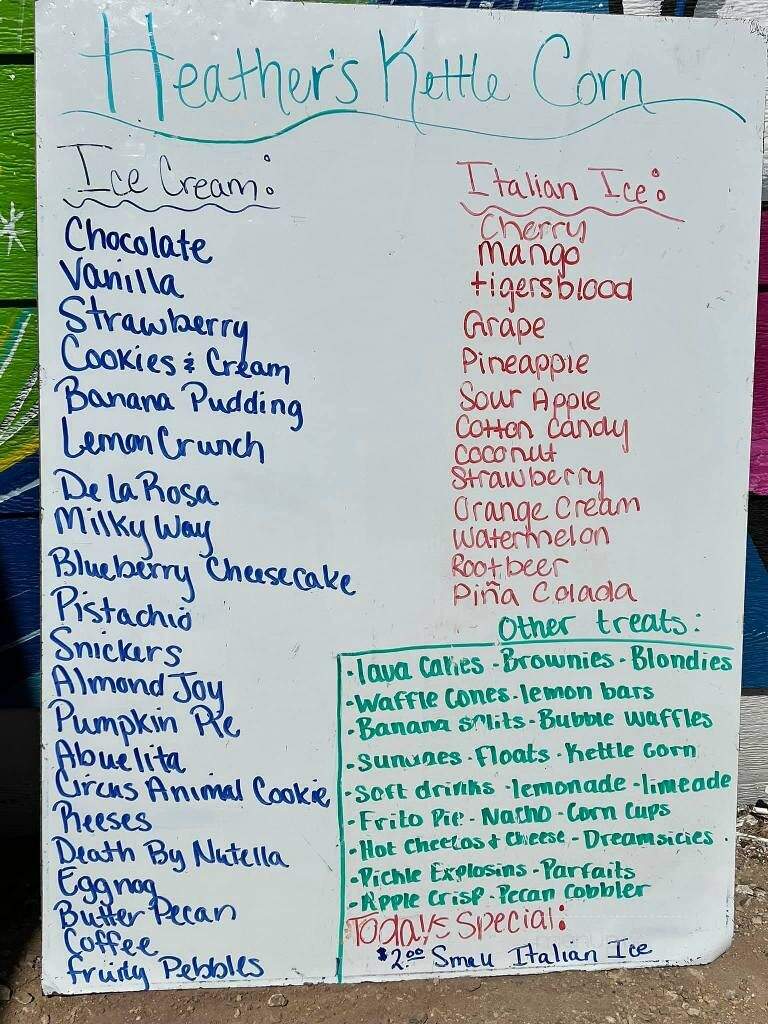 Heather's Kettle Corn
Ice Cream:
Chocolate
Vanilla
Strawberry
Cookies & Cream
Banana Pudding
Lemon Crunch
De La Rosa
Milky Way
Blueberry Cheesecake
Pistachio
Snickers
Almond Joy
Pumpkin Pie
Abuelita
Circus Animal Cookie
Reeses
Death By Nutella
Eggnog
Butter Pecan
Coffee
Fruity Pebbles
Italian Ice:
Cherry
Mango
tigersblood
Grape
Pineapple
Sour Apple
Cotton Candy
Coconut
Strawberry
Orange Cream
Watermelon
Rootbeer
Piña Colada
Other treats:
·lava Cakes - Brownies - Blondies
·Waffle Cones - lemon bars
·Banana splits - Bubble Waffles
·Sundaes - Floats - Kettle Corn
·Soft drinks - lemonade - limeade
·Frito Pie - Nacho - Corn Cups
·Hot Cheetos & Cheese - Dreamsicies
·Pickle Explosins - Parfaits
·Apple Crisp - Pecan Cobbler
Today's Special:
$2.00 Small Italian Ice